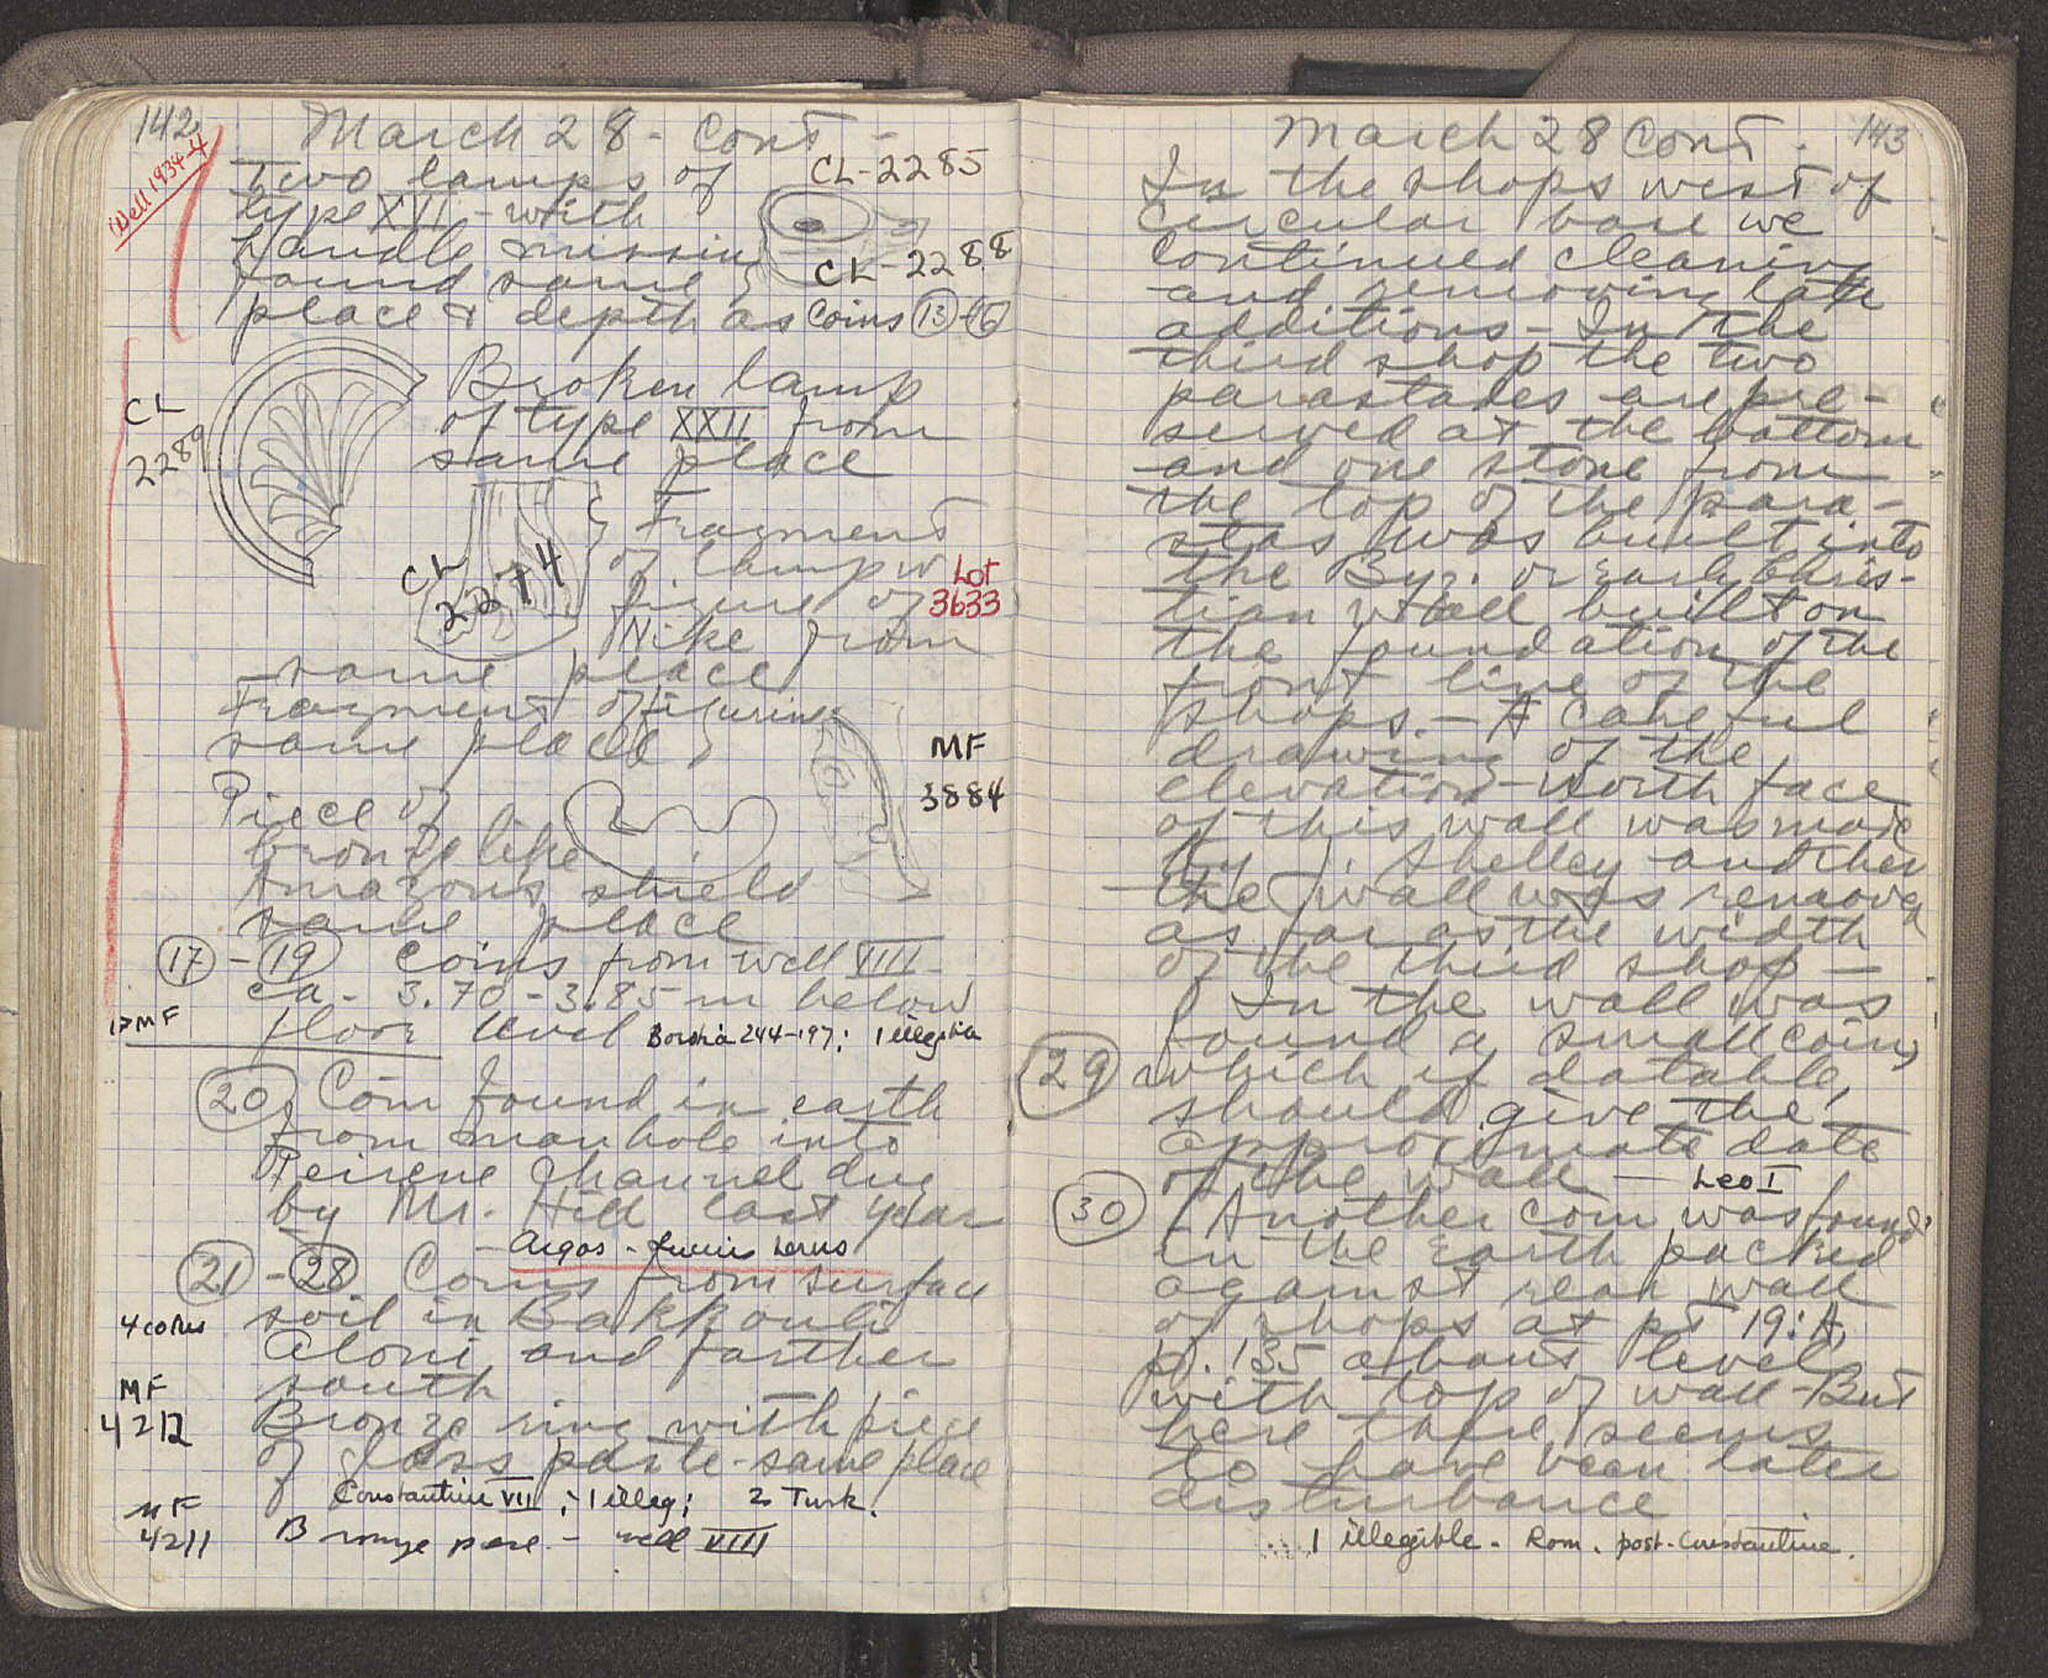 142
March 28 - Cont -
Well 1934-4
Two lamps of
CL-2285
type XII - with
handle missing
CL-2288
found same
place & depth as Coins 13-16
Broken lamp
CL
2289
of type XXII from
same place
Fragment
of lamp w
Lot
3633
CL
2274
figure of
Nike from
same place
Fragment of figurine
same place
MF
3884
Piece of
bronze like
Amazon's shield
same place
17 - 19 Coins from well VIII
ca. 3.70 - 3.85 m below
floor level
MF
244-197: 1 illegible
20 Coin found in earth
from manhole into
Peirene Channel dug
by Mr. Hill last year
Argos - Verus
21 - 28 Coins from surface
4 coins
soil in Bakkouli
Aloni and farther
south
MF
4212
Bronze ring with piece
of glass paste - same place
Constantine VII; 1 illeg; 2 Turk.
MF
4211
Bronze - well VIII
March 28 Cont. 143
In the shops west of
circular base we
continued cleaning
and removing late
additions - In the
third shop the two
parastades are pre-
served at the bottom
and one stone from
the top of the para-
stas was built into
the Byz. or early Chris-
tian wall built on
the foundation of the
front line of the
shops. - A careful
drawing of the
elevation - North face
of this wall was made
by J. Shelley and then
the wall was removed
as far as the width
of the third shop -
In the wall was
found a small coin,
29 which if datable,
should give the
approximate date
of the wall - Leo I
30 Another coin was found
in the earth packed
against rear wall
of shops at pt 19: A,
p. 135 about level
with top of wall - But
here there seems
to have been later
disturbance
1 illegible - Rom. post-Constantine.